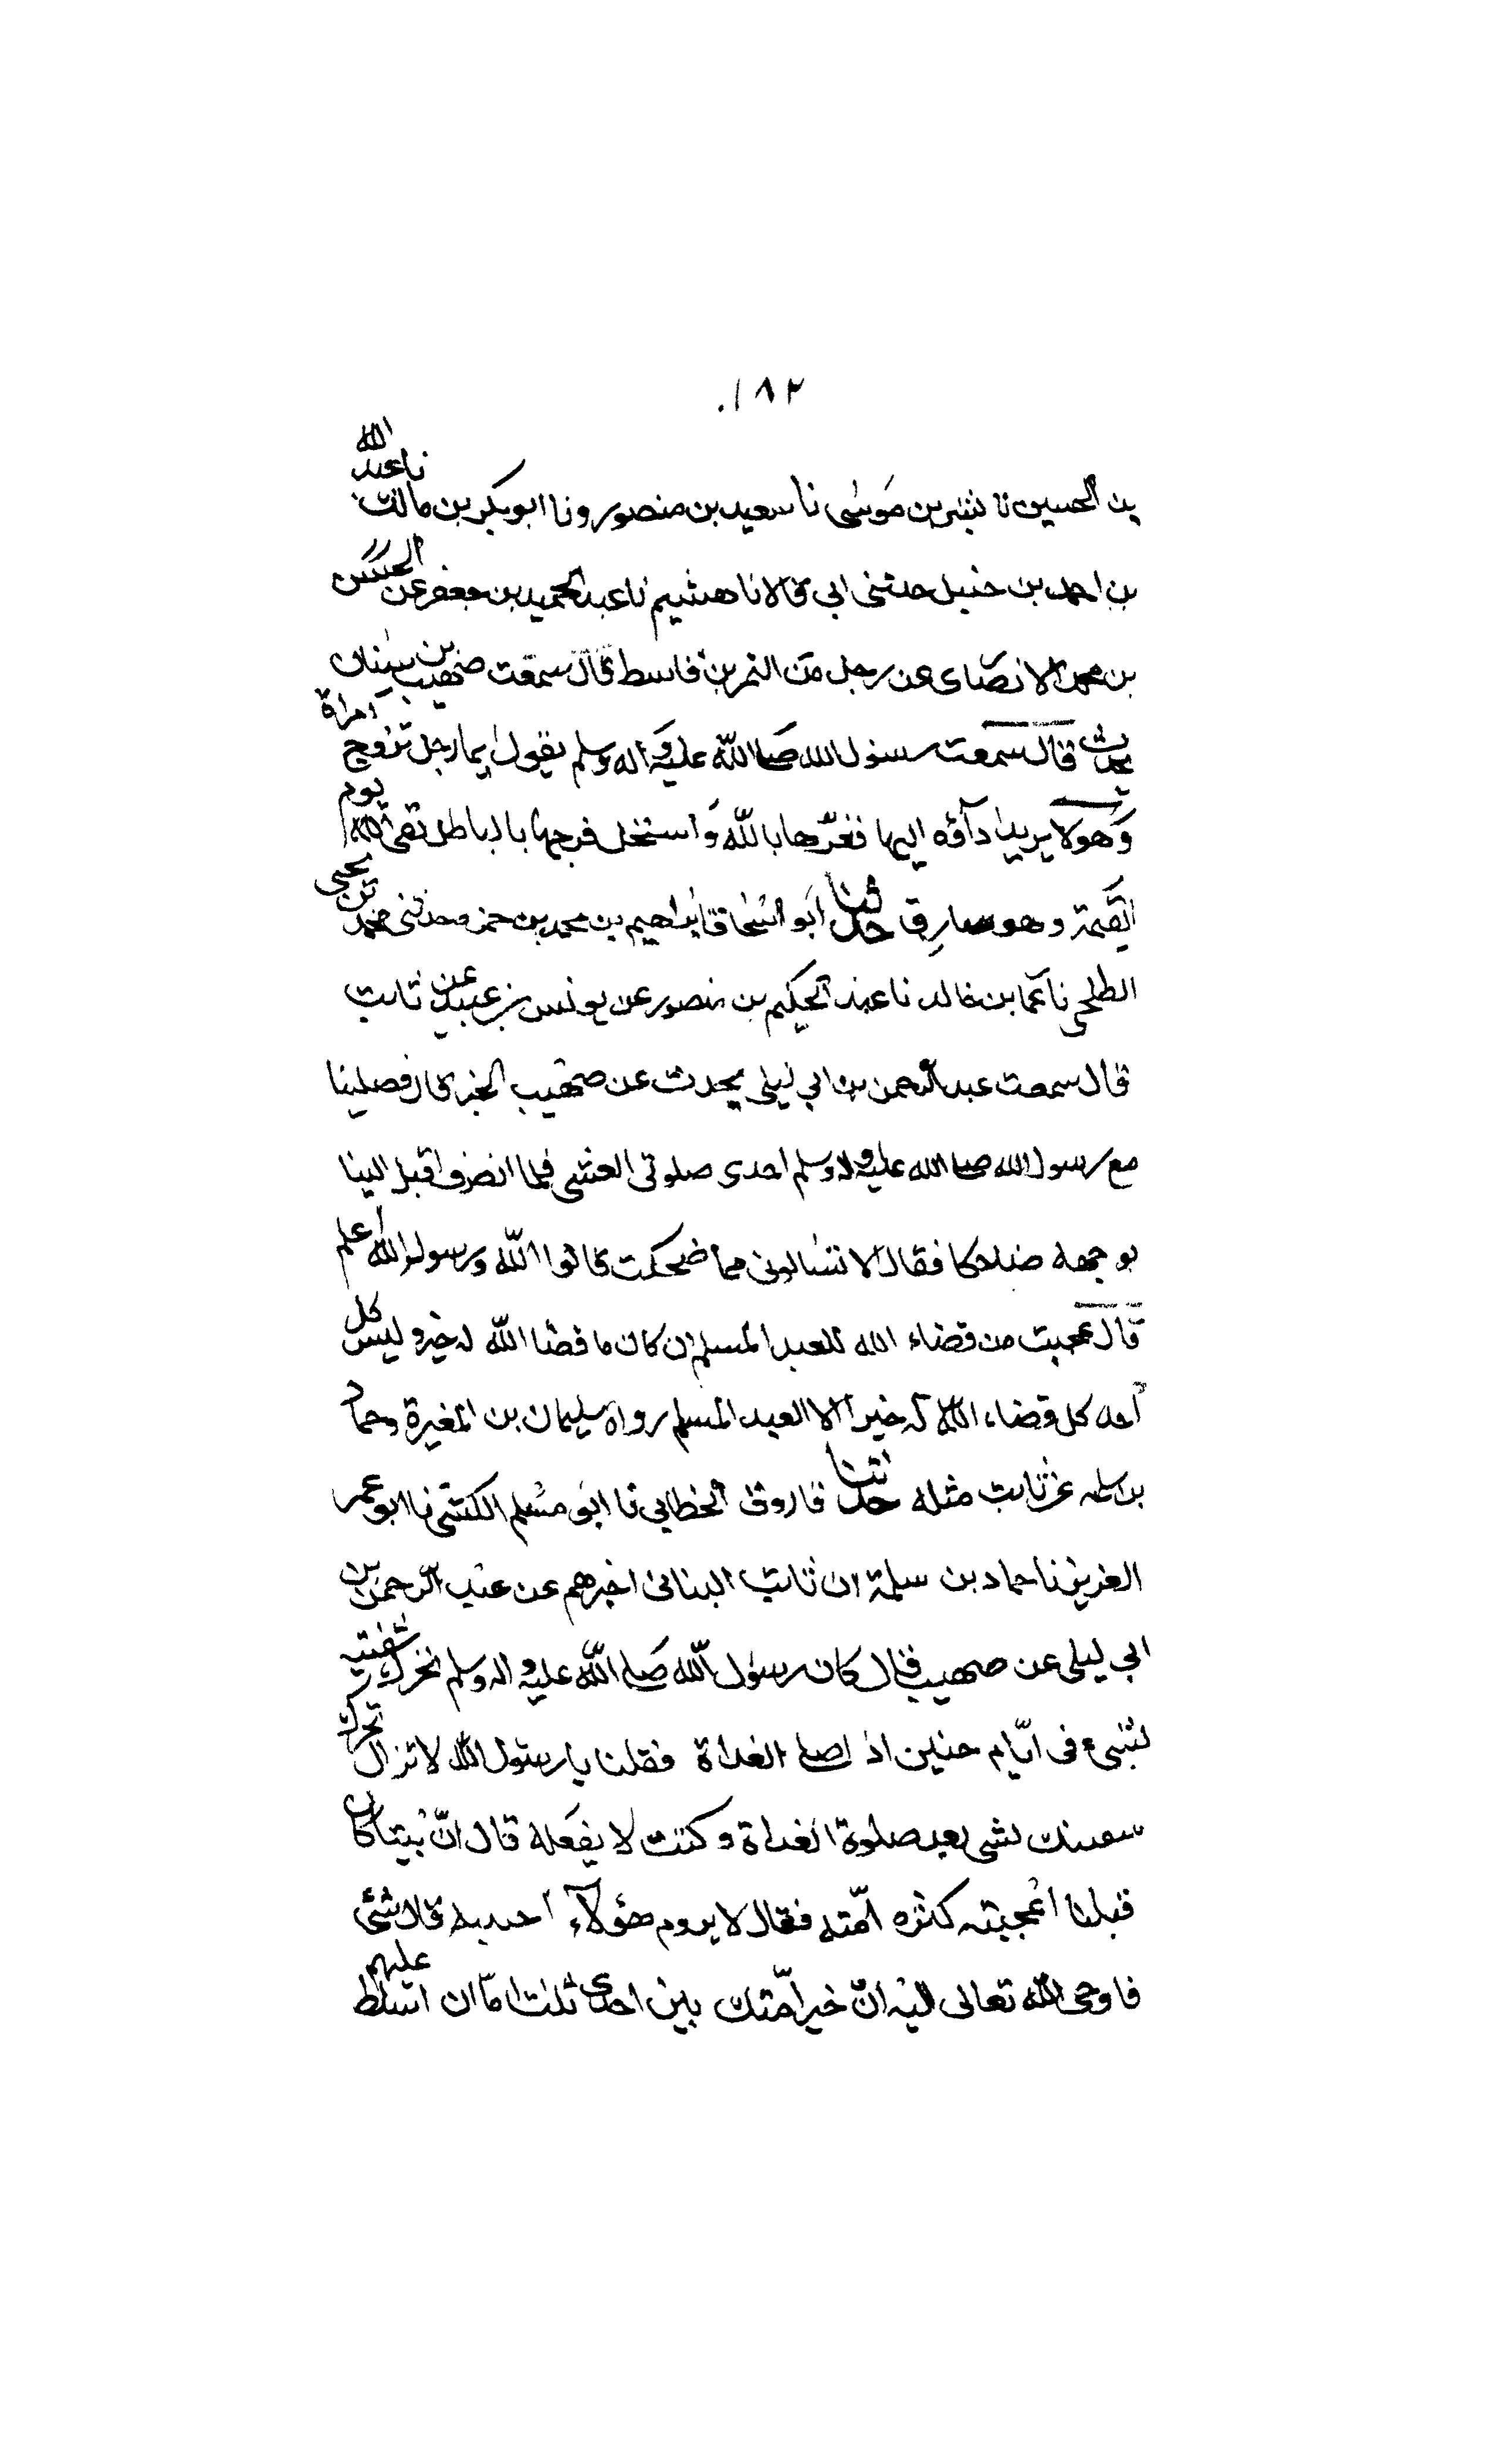 ١٨٢
بن الحسين نا بشر بن موسى نا سعيد بن منصور ونا ابو بكر بن مالك نا عبد الله
بن احمد بن حنبل حدثني ابي قالا نا هشيم نا عبد الحميد بن جعفر عن الحسن
بن محمد الانصاى عن رجل من النمر بن قاسط قال سمعت صهيب بن سنان
يحدث قال سمعت رسول الله صلى الله عليه وآله وسلم يقول ايما رجل تزوج امراة
وهو لا يريد اداؤه اليها فغرها بالله واستحل فرجها بالباطل لقى الله يوم
القيمة وهو سارق حدثنا ابو اسحاق ابراهيم بن محمد بن حمزه حدثنى محمد بن يحيى
الطلحى نا عمار بن خالد نا عبد الحكيم بن منصور عن يونس بن عبيد عن ثابت
قال سمعت عبد الرحمن بن ابي ليلى يحدث عن صهيب الخير قال فصلينا
مع رسول الله صلى الله عليه واله وسلم احدى صلوتى العشى فلما انصرف اقبل الينا
بوجهه ضاحكا فقال الا تسالونى مما ضحكت قالوا الله ورسوله اعلم
قال عجبت من قضاء الله للعبد المسلم ان كان ما قضا الله له خير وليس كل
احد كل قضاء الله له خير الا العبد المسلم رواه سليمان بن المغيرة وحماد
بن سلمه عن ثابت مثله حدثنا فاروق الخطابي نا ابو مسلم الكشى نا ابو عمر
العزيز نا حماد بن سلمة ان ثابت البنانى اخبرهم عن عبد الرحمن بن
ابي ليلى عن صهيب قال كان رسول الله صلى الله عليه واله وسلم تحرك شفتيه
بشىء فى ايام حنين اذ اصلى الغداة فقلنا يا رسول الله لا تزال تحرك
شفتيك بشى بعد صلوة الغداة وكنت لا يفعله قال ان نبيا كان
قبلنا اعجبته كثره امته فقال لا يروم هؤلاء احسبه قال شئ
فاوحى الله تعالى اليه ان خير امتك بين احدى ثلث اما ان اسلط عليهم